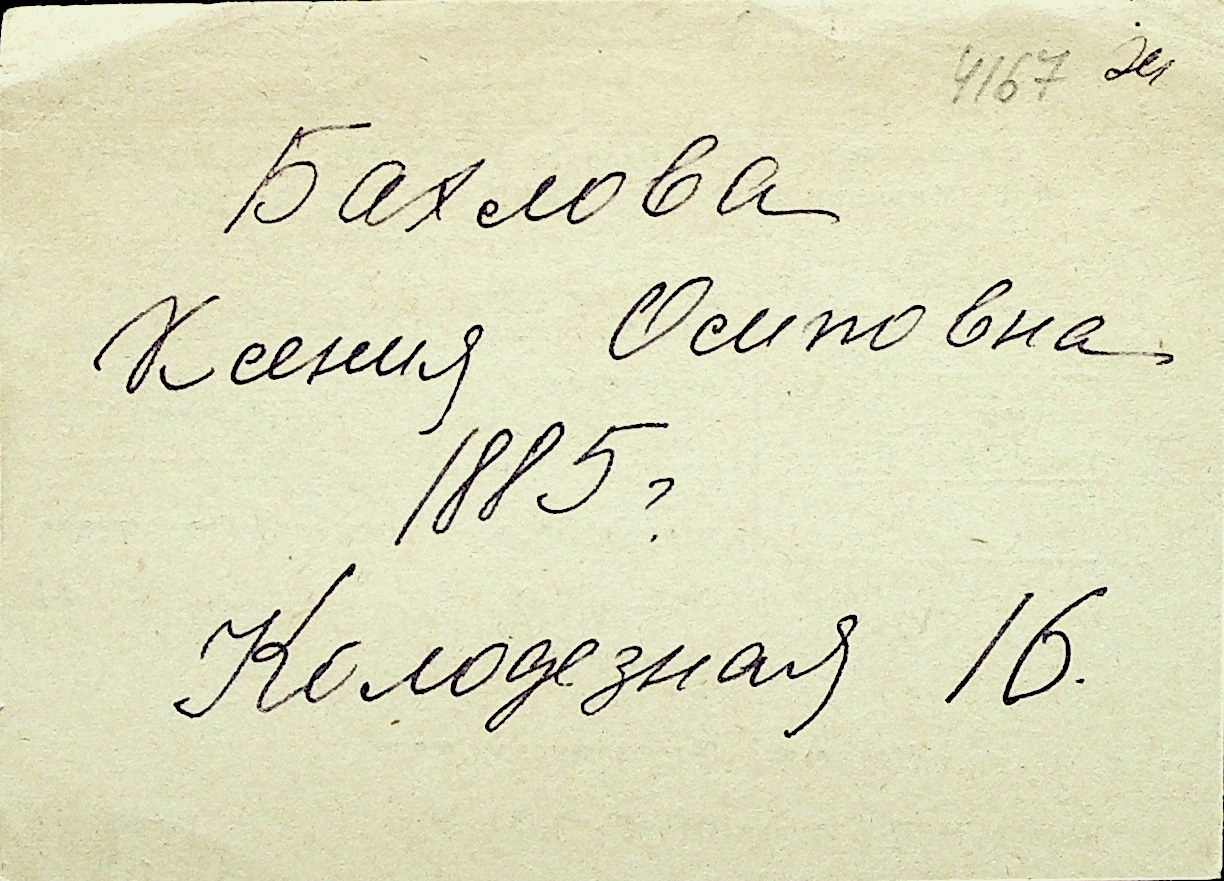 4167
Бахлова
Ксения Осиповна
1885?
Колодезная 16.